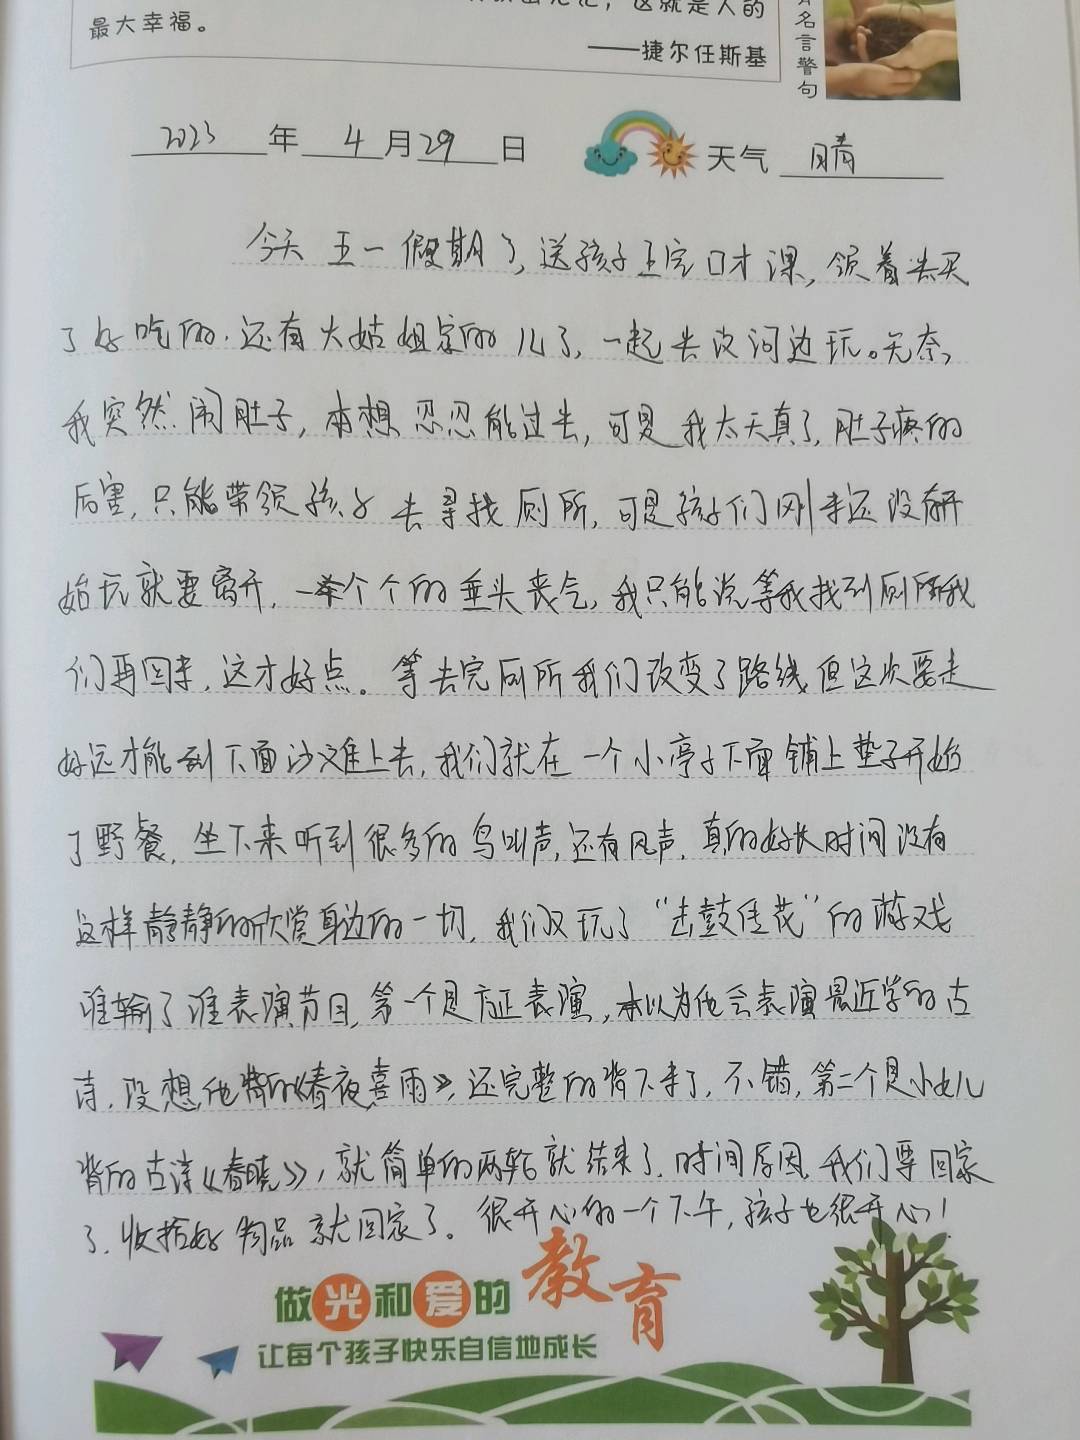 这就是人的
最大幸福。
——捷尔任斯基
名言警句
2023年4月29日 天气 晴
今天五一假期了,送孩子上完口才课,领着去买
了好吃的.还有大姑姐家的儿子,一起去汶河边玩。无奈,
我突然闹肚子,本想忍忍能过去,可是我太天真了,肚子疼的
厉害,只能带领孩子去寻找厕所,可是孩子们刚来还没有开
始玩就要离开,一个个的垂头丧气,我只能说等我找到厕所我
们再回来,这才好点。等去完厕所我们改变了路线,但这次要走
好远才能到下面沙滩上去,我们就在一个小亭子下面铺上垫子开始
了野餐,坐下来听到很多的鸟叫声,还有风声,真的好长时间没有
这样静静的欣赏身边的一切,我们又玩了“击鼓传花”的游戏
谁输了谁表演节目,第一个是方正表演,本以为他会表演最近学的古
诗,没想他背的《春夜喜雨》,还完整的背下来了,不错,第二个是小女儿
背的古诗《春晓》,就简单的两轮就结束了.时间原因,我们要回家
了.收拾好物品就回家了。很开心的一个下午,孩子也很开心!
做光和爱的教育
让每个孩子快乐自信地成长